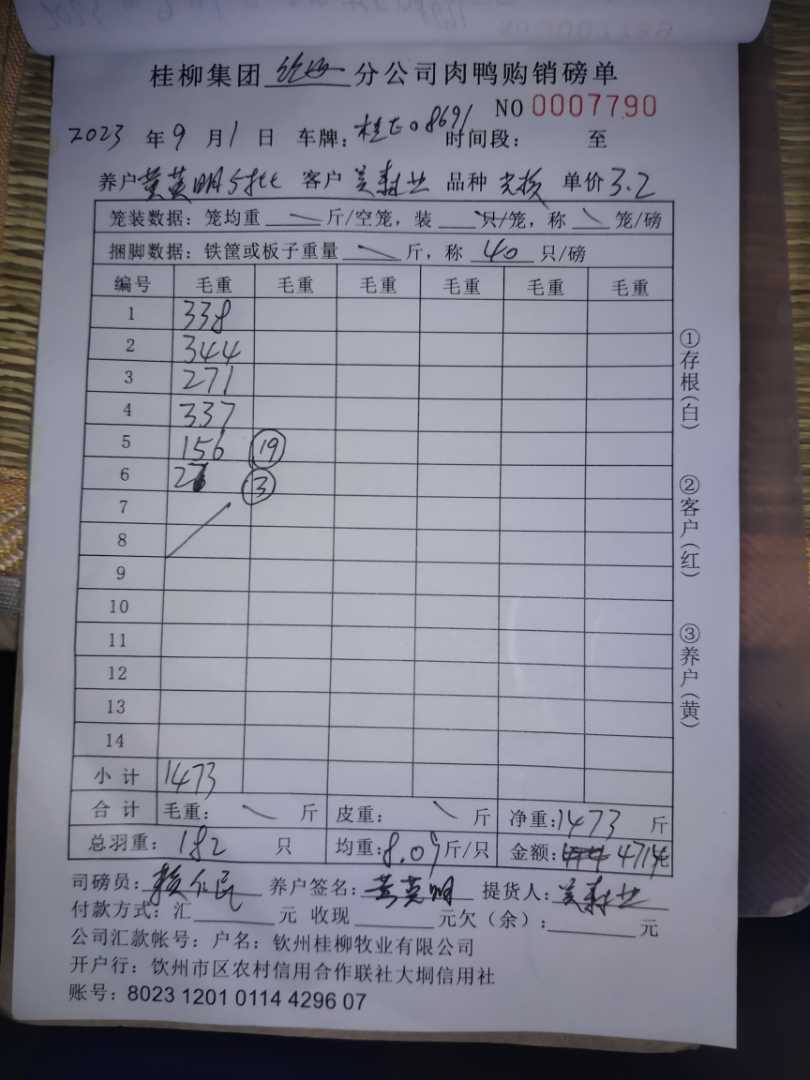 桂柳集团 分公司肉鸭购销磅单
NO 0007790
2023 年 9 月 1 日 车牌: 桂 08691 时间段: 至
养户 黄英明5批 客户 品种 单价 3.2
笼装数据: 笼均重 斤/空笼, 装 只/笼, 称 笼/磅
捆脚数据: 铁筐或板子重量 斤, 称 40 只/磅
编号 毛重 毛重 毛重 毛重 毛重 毛重
1 338
2 344
3 271
4 337
5 156 19
6 3
7
8
9
10
11
12
13
14
小计 1473
合计 毛重: 斤 皮重: 斤 净重: 1473 斤
总羽重: 182 只 均重: 8.09 斤/只 金额: 4714元
司磅员: 养户签名: 黄英明 提货人:
付款方式: 汇 元 收现 元欠(余): 元
公司汇款帐号: 户名: 钦州桂柳牧业有限公司
开户行: 钦州市区农村信用合作联社大垌信用社
账号: 8023 1201 0114 4296 07
①存根(白)
②客户(红)
③养户(黄)